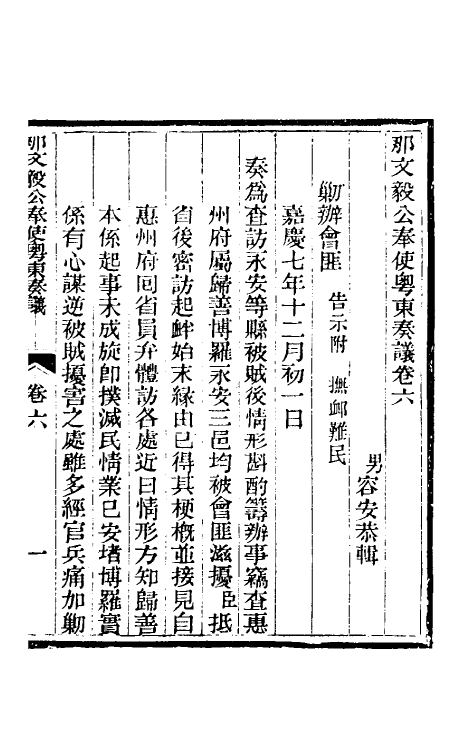 那文毅公奉使粵東奏議卷六
男容安恭輯
勦辦會匪　告示附　撫卹難民
嘉慶七年十二月初一日
奏爲查訪永安等縣被賊後情形斟酌籌辦事竊查惠
州府屬歸善博羅永安三邑均被會匪滋擾臣抵
省後密訪起衅始末緣由已得其梗概並接見自
惠州府回省員弁體訪各處近日情形方知歸善
本係起事未成旋卽撲滅民情業已安堵博羅實
係有心謀逆被賊擾害之處雖多經官兵痛加勦
那文毅公奉使粵東奏議　卷六　一